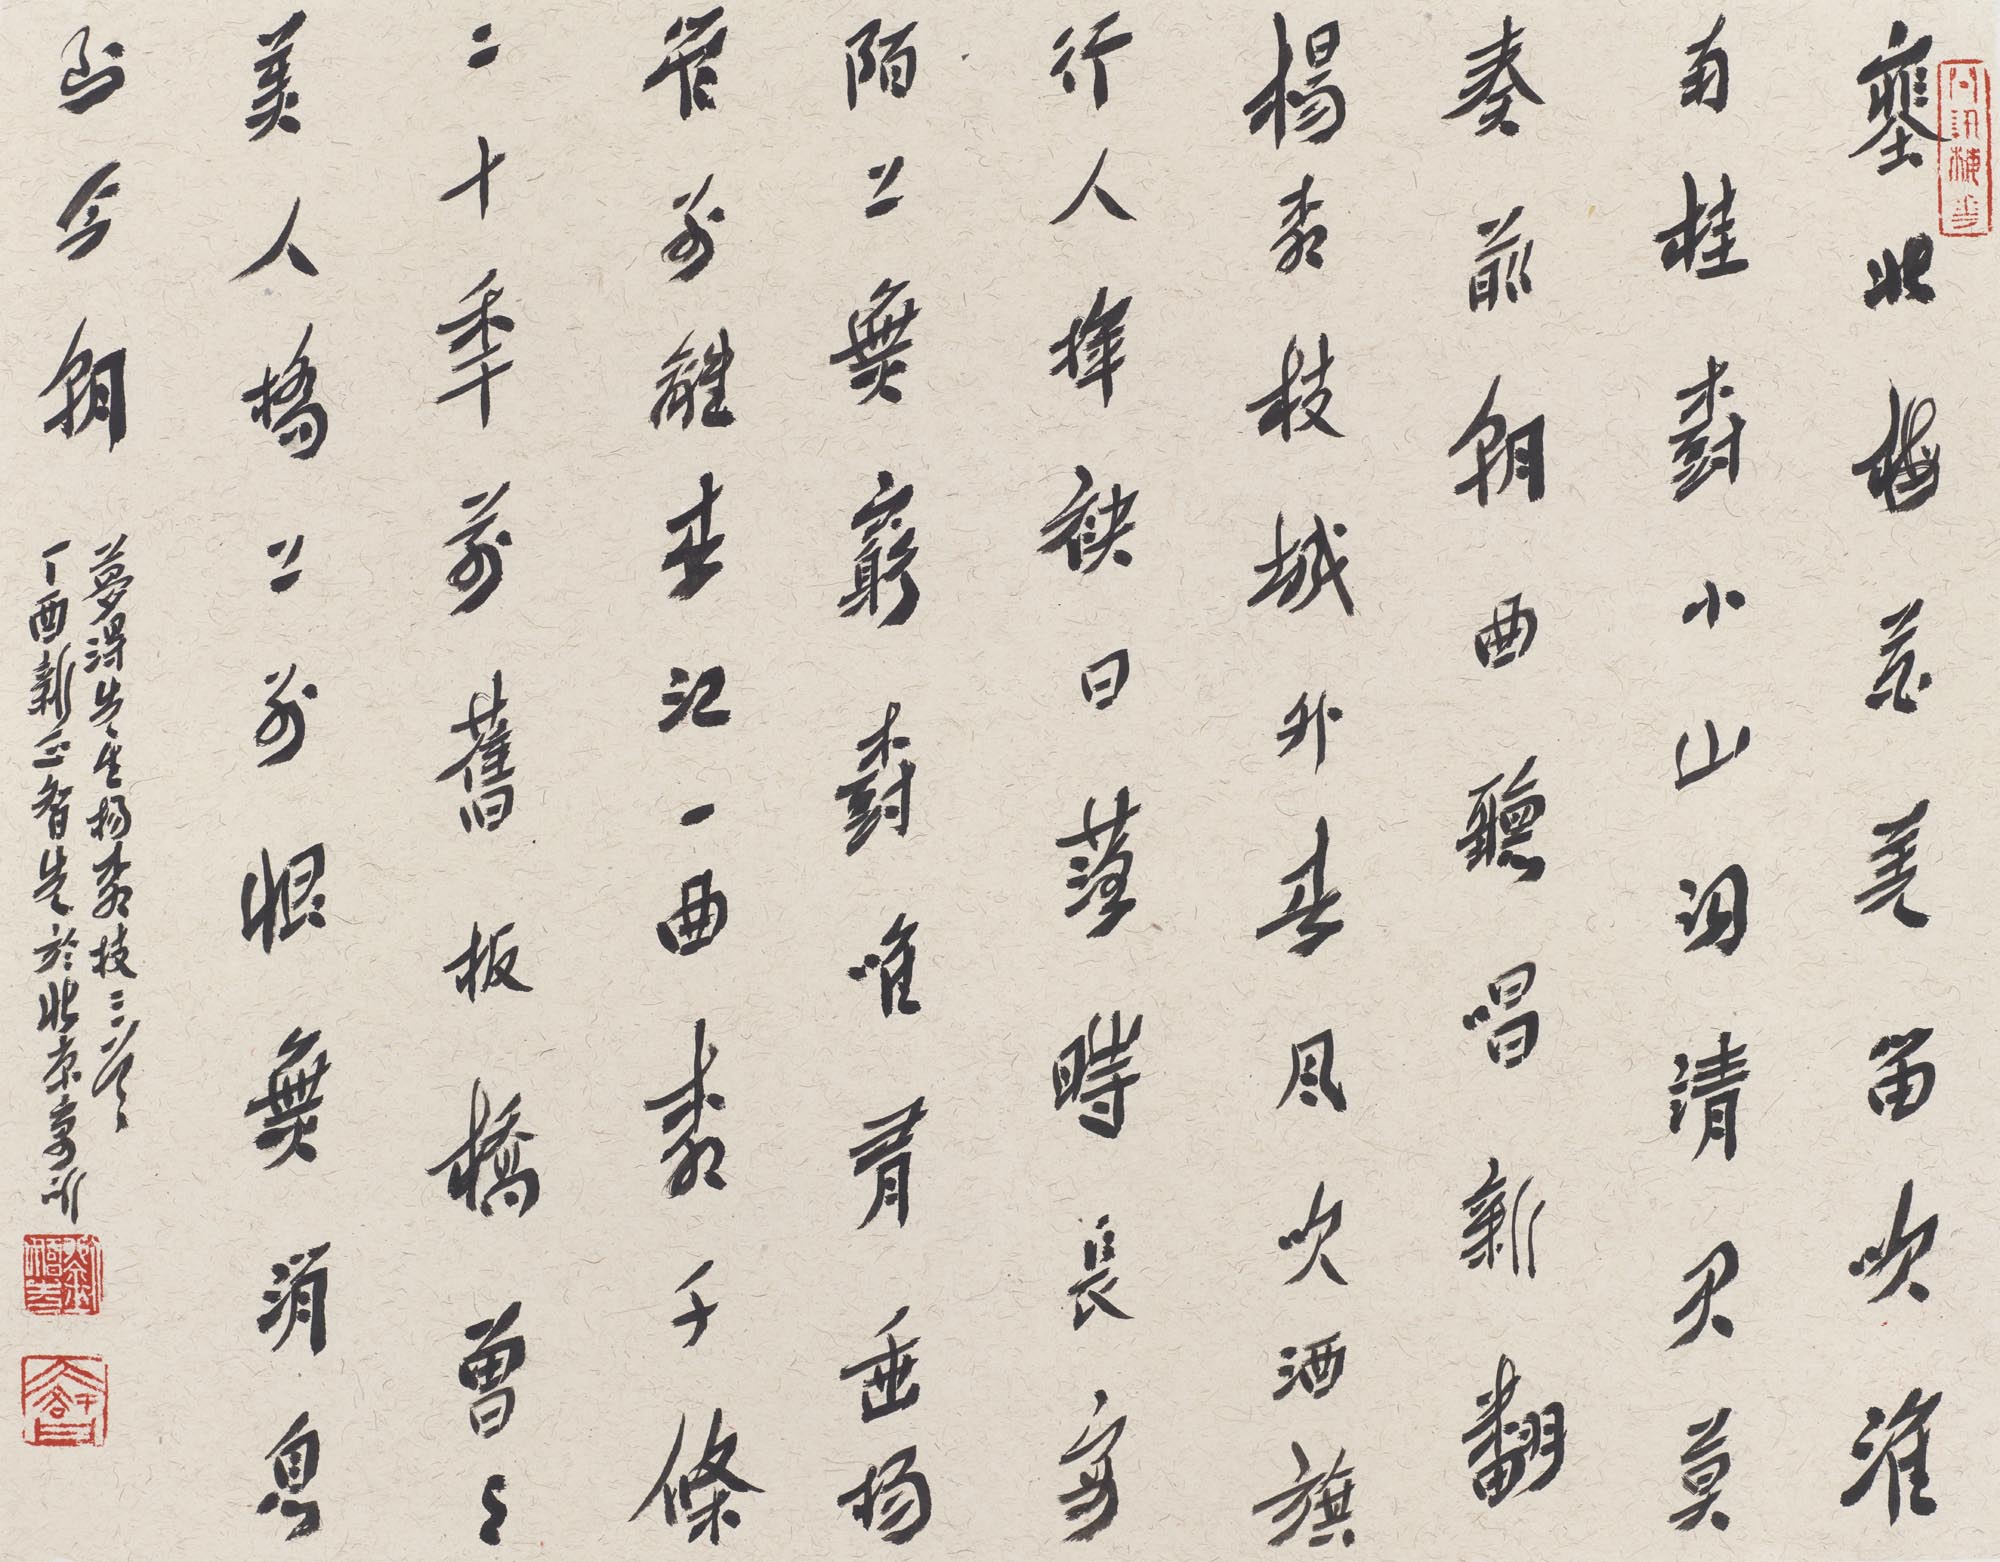 塞北梅花羌笛吹淮
南桂樹小山詞清君莫
奏前朝曲聽唱新翻
楊柳枝城外春風吹酒旗
行人揮袂日落時長安
陌上無窮樹唯有垂楊
管別離春江一曲柳千條
二十年前舊板橋曾與
美人橋上別恨無消息
到今朝
夢得先生楊柳枝三首
丁酉新正智先於北京
問訊梅花